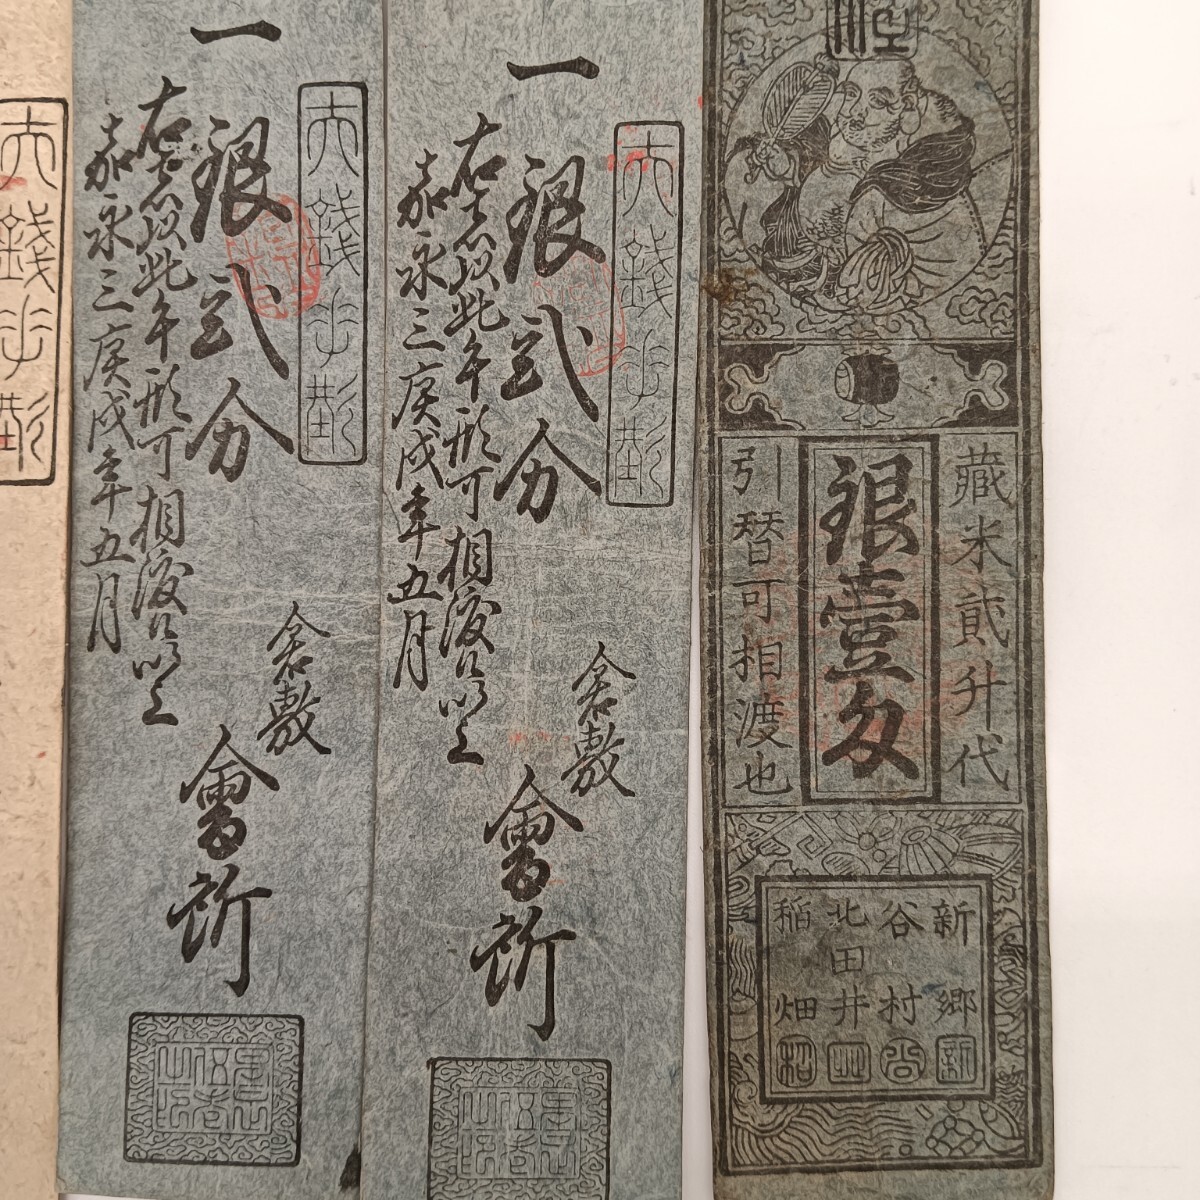 藏米貳升代
銀壹匁
引替可相渡也
新郷
谷村
北田井
稲畑
新
谷
一
銀貳分
右者以此手形可相渡候以上
嘉永三庚戌年五月
倉敷
會所
一
銀貳分
右者以此手形可相渡候以上
嘉永三庚戌年五月
倉敷
會所